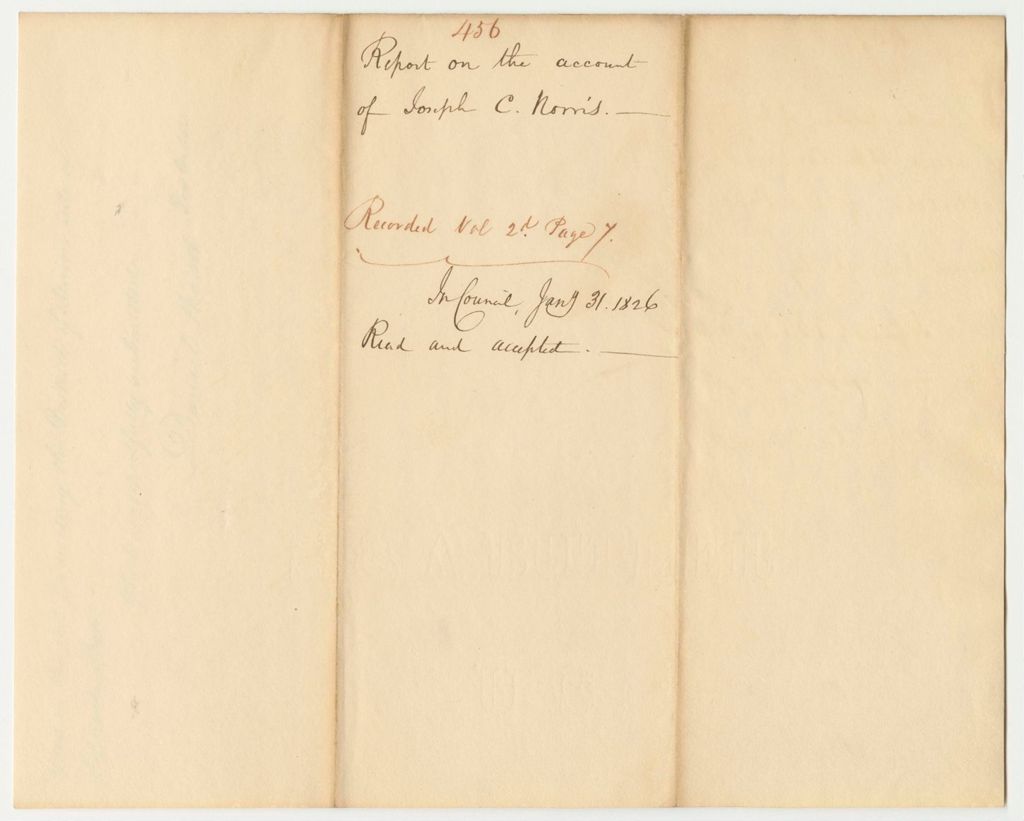 456
Report on the account
of Joseph C. Norris. —
Recorded Vol 2d. Page 7.
In Council, Jany 31. 1826
Read and accepted. —